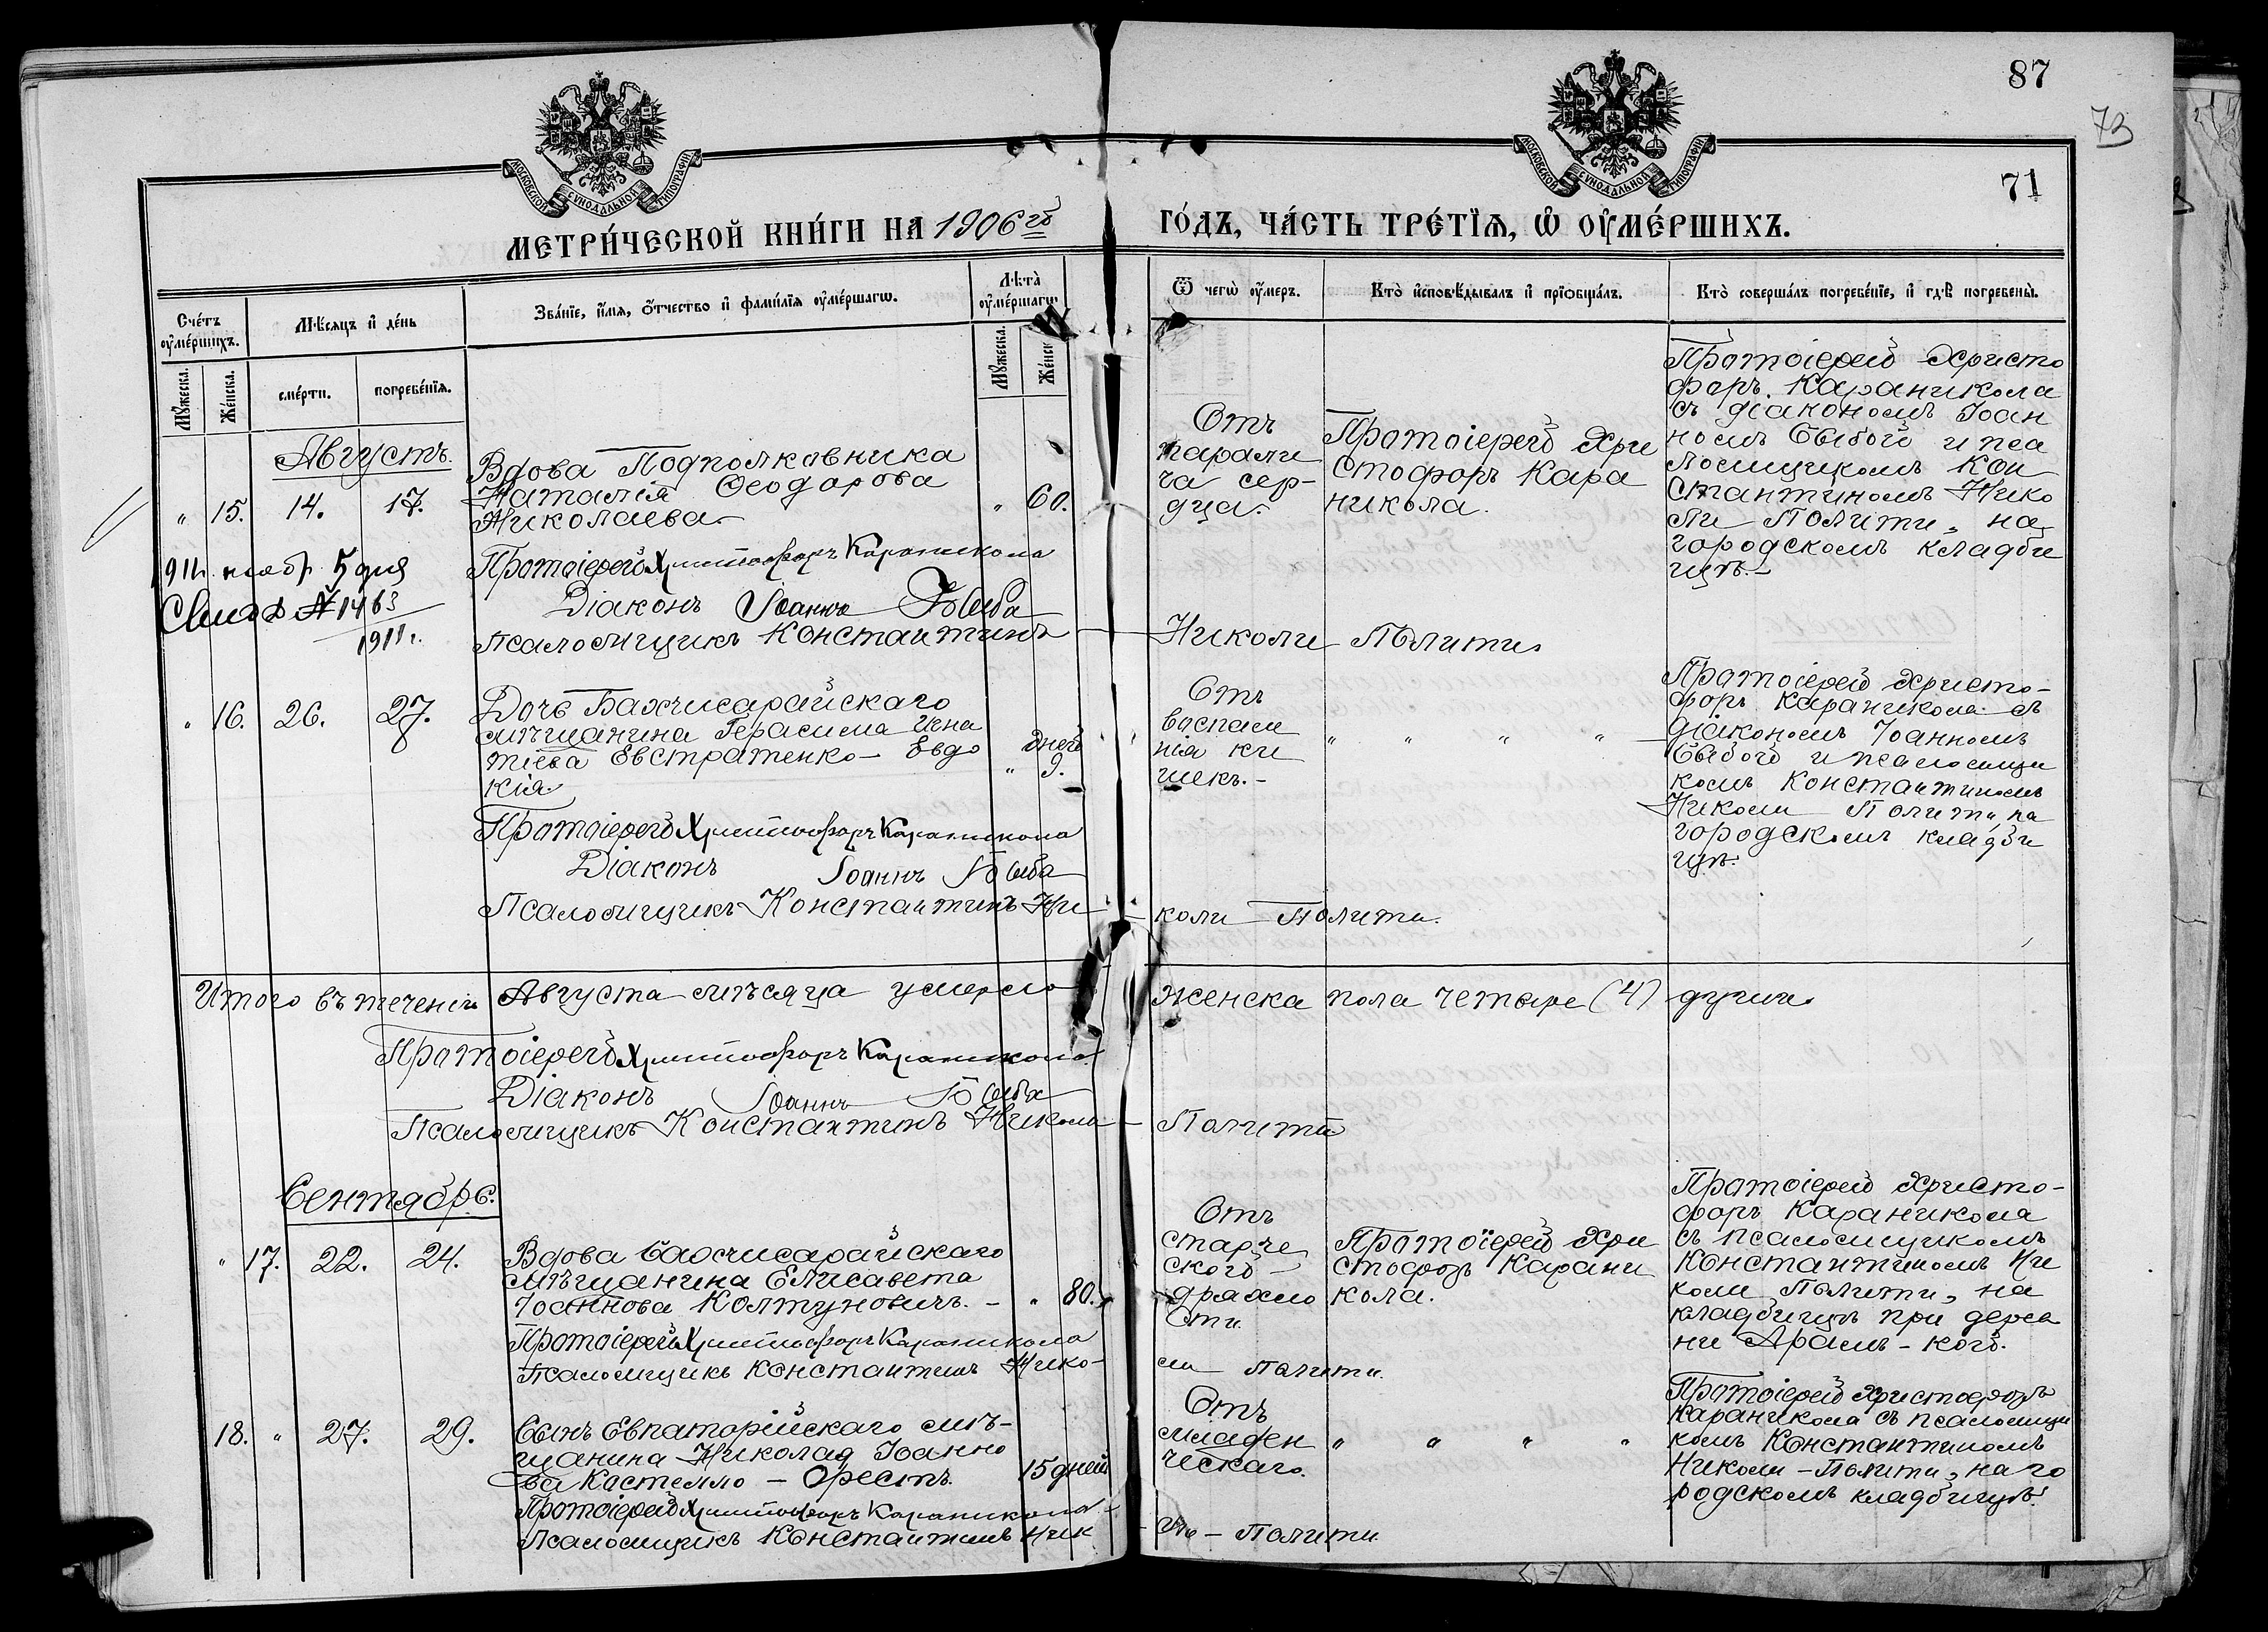 87
73
71
МОСКОВСКОЙ СѴНОДАЛЬНОЙ ТИПОГРАФІИ
МОСКОВСКОЙ СѴНОДАЛЬНОЙ ТИПОГРАФІИ
МЕТРИ́ЧЕСКОЙ КНИ́ГИ НА 1906 г҃о
ГО́ДЪ, ЧА́СТЬ ТРЕ́ТЇѦ, Ѽ ОУ҆МЕ́РШИХЪ.
Сче́тъ оу҆ме́ршихъ.
Мꙋ́жеска.
Же́нска.
Мѣ́сѧцъ и҆ де́нь
сме́рти.
погребе́нїѧ.
Зва́нїе, и҆́мѧ, ѻ҆́тчество и҆ фами́лїѧ оу҆ме́ршагѡ.
Лѣ́та оу҆ме́ршагѡ
Мꙋ́жеска.
Же́нск
Ѿ чегѡ̀ оу҆́меръ.
Кто̀ и҆сповѣ́дывалъ и҆ прїѡбща́лъ.
Кто̀ соверша́лъ погребе́нїе, и҆ гдѣ̀ погребены̀.
Августъ.
" 15. 14. 17.
Вдова Подполковника
Наталія Ѳеодорова
Николаева.
" 60.
Отъ
парали
ча сер-
дца.
Протоіерей Хри
стофоръ Кара
никола.
Протоіерей Христо
форъ Караникола
съ діакономъ Іоан
номъ Быбой и пса
ломщикомъ Кон
стантиномъ Нико
ли Полити, на
городскомъ кладби
щѣ.-
911г. нояб. 5 дня
Свид. № 1463
1911 г.
Протоіерей Христофоръ Караникола
Діаконъ Іоаннъ Быба
Псаломщикъ Константинъ Николи Полити
" 16. 26. 27.
Дочь Бахчисарайскаго
мѣщанина Герасима Игна
тіева Евстратенко - Евдо
кія.
дней
" 9.
Отъ
воспале
нія ки
шекъ.-
" " " "
Протоіерей Христо-
форъ Караникола съ
діакономъ Іоанномъ
Быбой и псаломщи
комъ Константиномъ
Николи Полити, на
городскомъ кладби
щѣ.
Протоіерей Христофоръ Караникола
Діаконъ Іоаннъ Быба
Псаломщикъ Константинъ Николи Полити.
Итого въ теченіи Августа мѣсяца умерло женска пола четыре (4) души.
Протоіерей Христофоръ Караникола
Діаконъ Іоаннъ Быба
Псаломщикъ Константинъ Николи Полити
Сентябрь.
" 17. 22. 24.
Вдова бахчисарайскаго
мѣщанина Елисавета
Іоаннова Колтуновичъ. -
" 80.
Отъ
старче
ской
дряхло
сти.
Протоіерей Хри
стофоръ Карани
кола.
Протоіерей Христо-
форъ Караникола
съ псаломщикомъ
Константиномъ Ни
коли Полити, на
кладбищѣ при дерев
ни
Протоіерей Христофоръ Караникола
Псаломщикъ Константинъ Нико-
ли Полити.
18. " 27. 29.
Сынъ Евпаторійскаго мѣ-
щанина Николая Іоанно
ва Кастелло - Орестъ.
15 дней
Отъ
младен
ческаго.
" " " "
Протоіерей Христофоръ
Караникола съ псаломщи
комъ Константиномъ
Николи - Полити, на го
родскомъ кладбищѣ.
Протоіерей Христофоръ Караникола
Псаломщикъ Константинъ Ник
оли - Полити